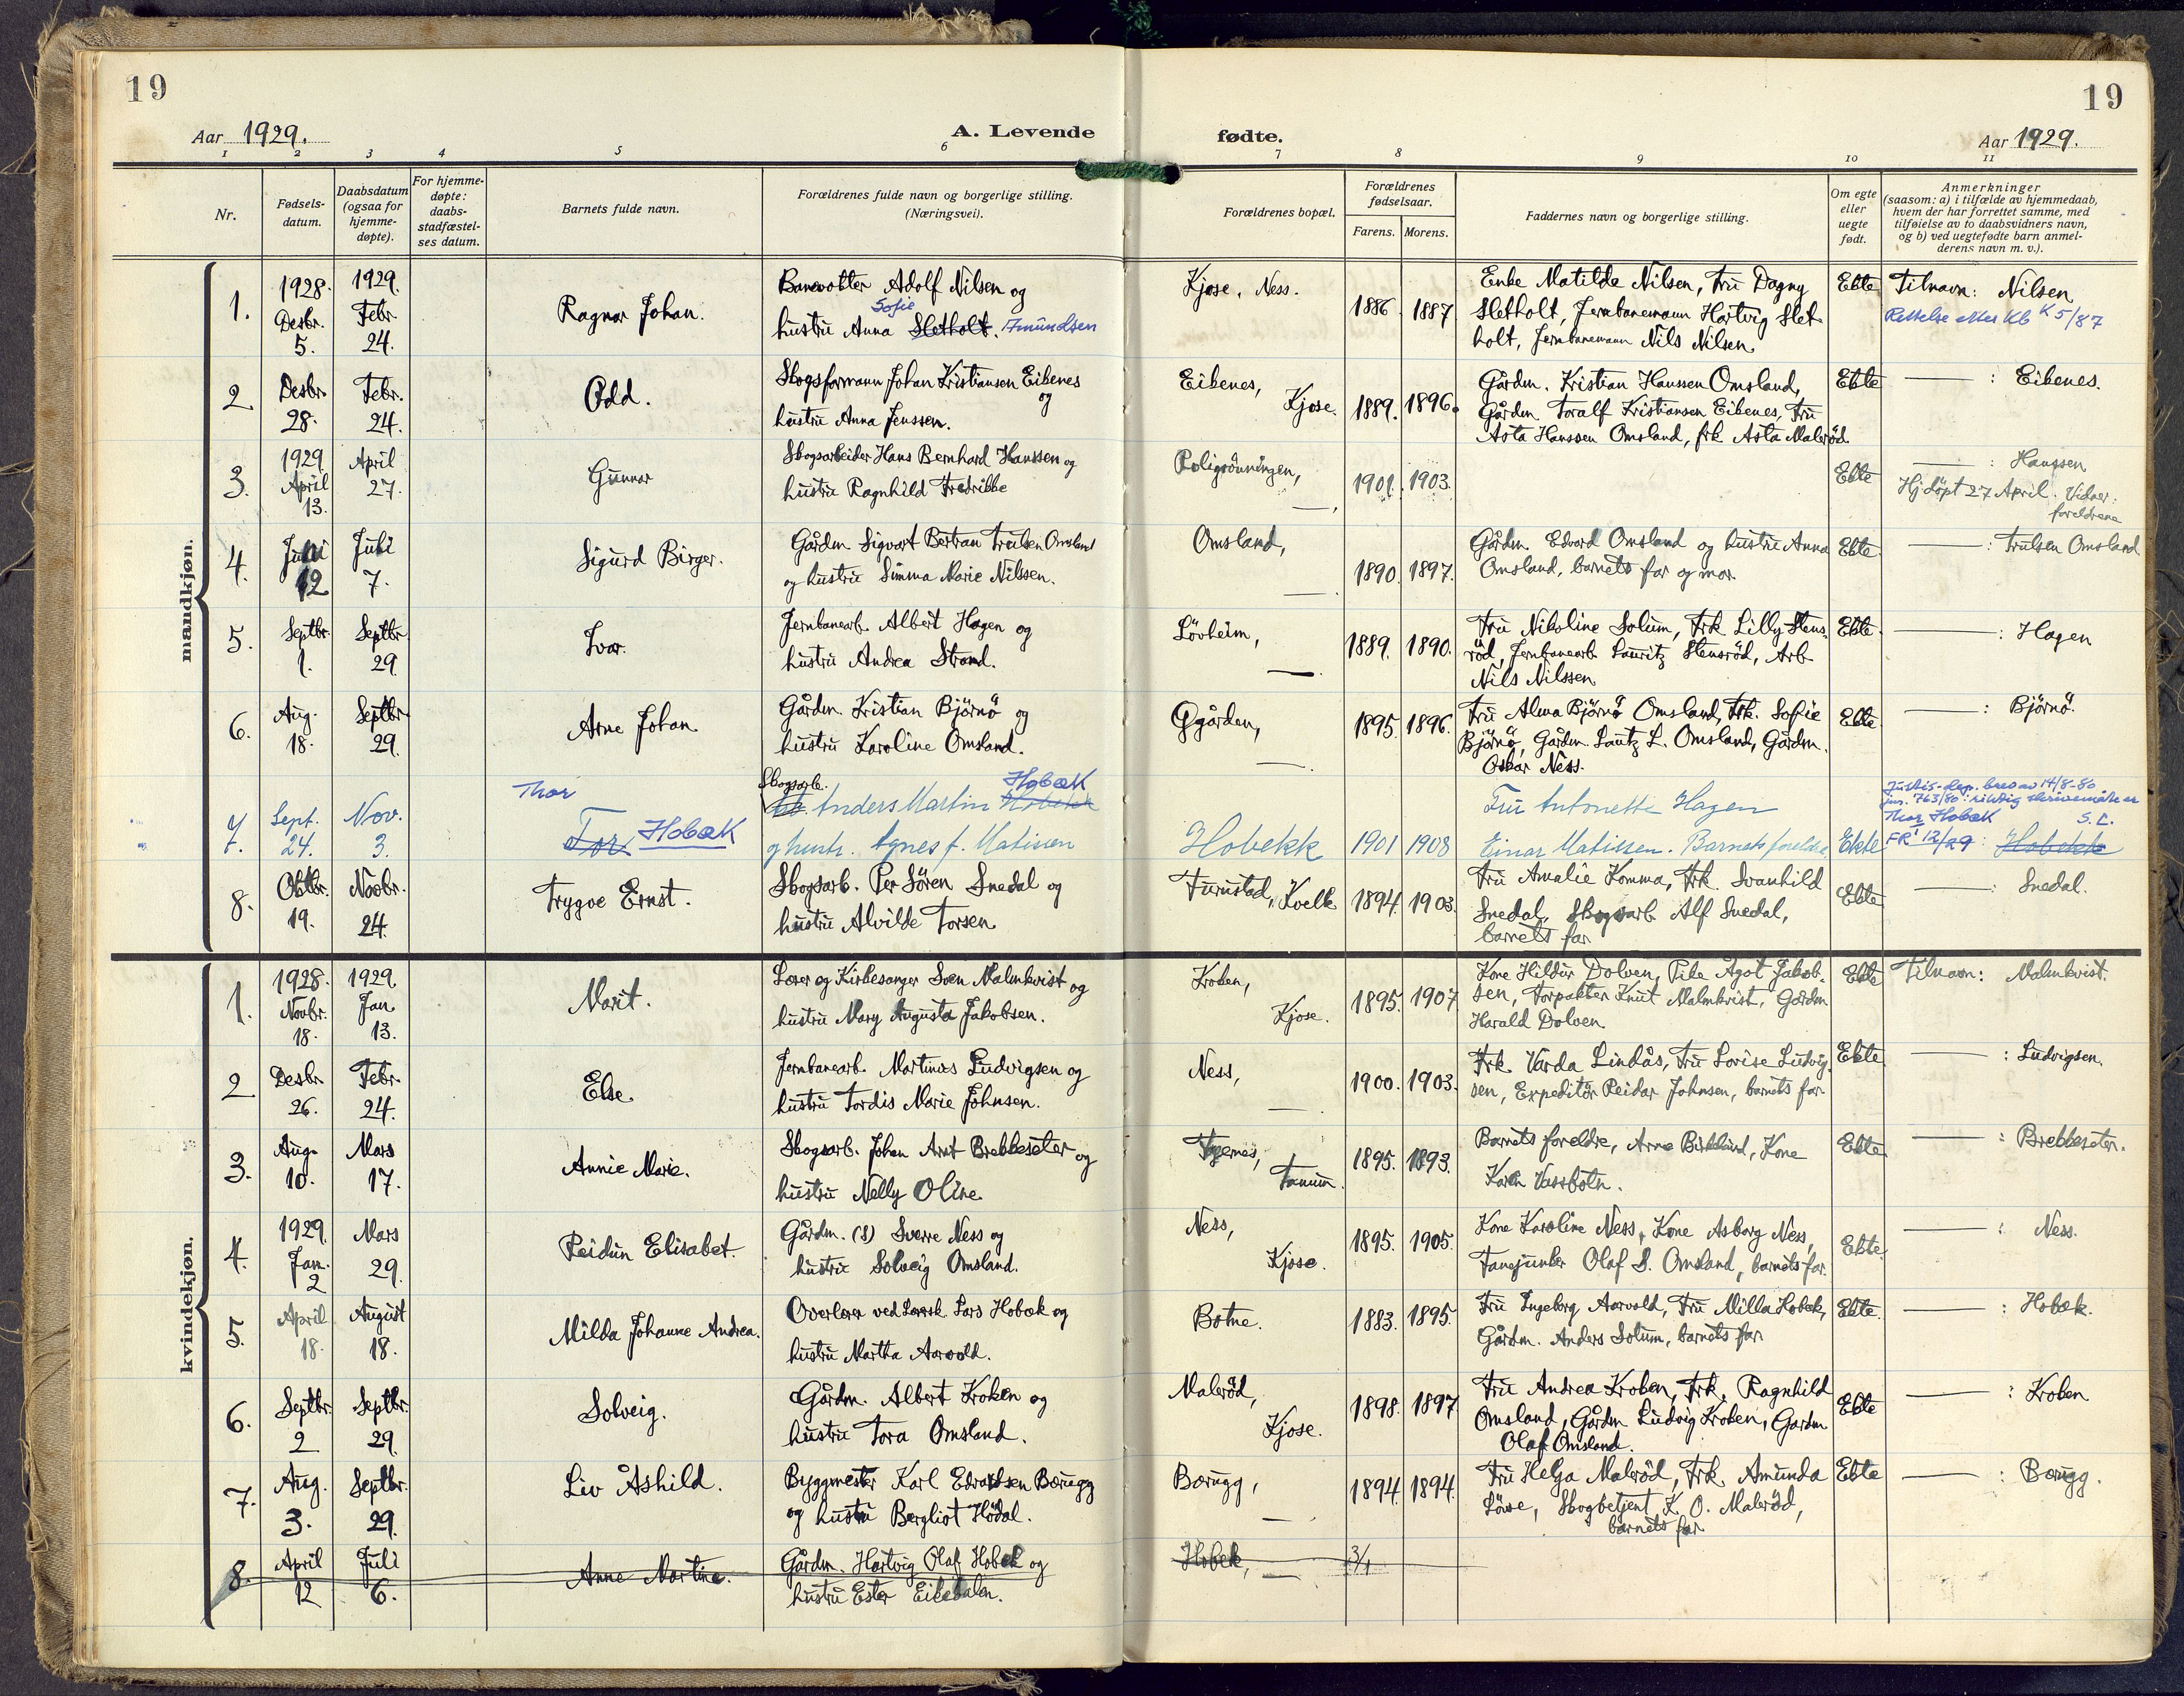 19
19
Aar 1929.
A. Levende
fødte.
Aar 1929.
1 2 3 4 5 6 7 8 9 10 11
Nr.
Fødsels-
datum.
Daabsdatum
(ogsaa for
hjemme-
døpte).
For hjemme-
døpte:
daabs-
stadfæstel-
ses datum.
Barnets fulde navn.
Forældrenes fulde navn og borgerlige stilling.
(Næringsvei).
Forældrenes bopæl.
Forældrenes
fødselsaar.
Farens. Morens.
Faddernes navn og borgerlige stilling.
Om egte
eller
uegte
født.
Anmerkninger
(saasom: a) i tilfælde av hjemmedaab,
hvem der har forrettet samme, med
tilføielse av to daabsvidners navn,
og b) ved uegtefødte barn anmel-
derens navn m. v.).
mandkjøn.
1.
1928.
Desbr.
5.
1929.
Febr.
24.
Ragnar Johan.
Banevokter Adolf Nilsen og
Sofie
hustru Anna Sletholt. Amundsen
Kjose, Ness.
1886 1887
Enke Matilde Nilsen, Fru Dagny
Sletholt, Jernbanemann Hartvig Slet-
holt, Jernbanemann Nils Nilsen.
Ekte
Tilnavn: Nilsen
Rettelse etter Kb K 5/87
2.
Desbr.
28.
Febr.
24.
Odd.
Skogsformann Johan Kristiansen Eikenes
og
hustru Anna Jenssen.
Eikenes,
Kjose.
1889. 1896.
Gårdm. Kristian Hanssen Omsland,
Gårdm. Toralf Kristiansen Eikenes, Fru
Asta Hanssen Omsland, frk. Asta Malerød.
Ekte
— : Eikenes.
3.
1929
April
13.
April
27.
Gunnar
Skogsarbeider Hans Bernhard Hanssen og
hustru Ragnhild Fredrikke
Roligrønningen,
—.
1901. 1903.
Ekte
— : Hanssen
Hj.døpt 27 April. Vidner:
foreldrene
4.
Juni
12
Juli
7.
Sigurd Birger.
Gårdm. Sigvart Bertran Trulsen Omsland
og hustru Simma Marie Nilssen.
Omsland,
—.
1890. 1897.
Gårdm. Edvard Omsland og hustru Anna
Omsland, barnets far og mor.
Ekte
— : Trulsen Omsland.
5.
Septbr.
1.
Septbr.
29.
Ivar.
Jernbanearb. Albert Hagen og
hustru Andrea Strand.
Løvheim,
—.
1889. 1890.
Fru Nikoline Solum, Frk. Lilly Stens-
rød, Jernbanearb. Lauritz Stensrød, Arb.
Nils Nilssen.
Ekte.
— : Hagen
6.
Aug.
18.
Septbr.
29.
Arne Johan
Gårdm. Kristian Bjørnø og
hustru Karoline Omsland.
Øgården,
—.
1895. 1896.
Fru Alma Bjørnø Omsland, Frk. Sofie
Bjørnø, Gårdm. Lautz L. Omsland, Gårdm.
Oskar Ness.
Ekte.
— : Bjørnø.
7.
Sept.
24.
Nov.
3.
Thor
Tor Hobæk
Skogsarb. Hobæk
Anders Martin Hobekk
og hustr. Agnes f. Matisen
Hobekk
1901 1908
Fru Antonette Hagen
Einar Matissen. Barnets foreldre
Ekte
Justis-dep. brev av 14/8-80
jnr. 763/80: riktig skrivemåte er
Thor Hobæk S.L.
FR 12/29: Hobekk
8.
Oktbr.
19.
Novbr.
24.
Trygve Ernst.
Skogsarb. Per Søren Snedal og
hustru Alvilde Torsen
Furustad, Kvelle
1894. 1903.
Fru Amalie Komma, Frk. Svanhild
Snedal, Skogsarb. Alf Snedal,
barnets far.
Ekte
— : Snedal.
kvindekjøn.
1.
1928.
Novbr.
18.
1929.
Jan.
13.
Marit.
Lærer og Kirkesanger Sven Malmkvist og
hustru Mary Augusta Jakobsen.
Kroken,
Kjose.
1895. 1907
Kone Hildur Dolven, Pike Ågot Jakob-
sen, Forpakter Knut Malmkvist, Gårdm.
Harald Dolven
Ekte
Tilnavn: Malmkvist.
2.
Desbr.
26.
Febr.
24.
Else.
Jernbanearb. Martinus Ludvigsen og
hustru Tordis Marie Johnsen.
Ness,
—.
1900. 1903.
Frk. Varda Lindås, Fru Lovise Ludvig-
sen, Expeditør Reidar Johnsen, barnets far.
Ekte
— : Ludvigsen.
3.
Aug.
10.
Mars
17.
Annie Marie.
Skogsarb. Johan Arnt Brekkeseter og
hustru Nelly Oline
Tanum.
1895. 1893.
Barnets foreldre, Arne Birkelund, Kone
Karen Vassbotn.
Ekte
— : Brekkeseter.
4.
1929.
Jan.
2
Mars
29.
Reidun Elisabet.
Gårdm. (S) Sverre Ness og
hustru Solveig Omsland.
Ness,
Kjose.
1895. 1905.
Kone Karoline Ness, Kone Asborg Ness,
Fanejunker Olaf S. Omsland, barnets far.
Ekte
— : Ness.
5.
April
18.
August
18.
Milda Johanne Andrea.
Overlærer ved Lærersk. Lars Hobæk og
hustru Martha Aarvold.
Botne.
1883. 1895.
Fru Ingeborg Aarvold, Fru Milla Hobæk,
Gårdm. Anders Solum, barnets far.
Ekte.
— : Hobæk.
6.
Septbr.
2
Septbr.
29.
Solveig.
Gårdm. Albert Kroken og
hustru Tora Omsland.
Malerød,
Kjose.
1898. 1897.
Fru Andrea Kroken, Frk. Ragnhild
Omsland, Gårdm. Ludvig Kroken, Gårdm.
Olaf Omsland.
Ekte
— : Kroken
7.
Aug.
3.
Septbr.
29.
Liv Åshild.
Byggmester Karl Edvardsen Bærugg
og hustru Bergliot Hødal.
Bærugg,
—
1894. 1894.
Fru Helga Malerød, Frk. Amunda
Løwe, Skogbetjent K. O. Malerød,
barnets far.
Ekte
— : Bærugg.
8.
April
12
Juli
6.
Anne Martine.
Gårdm. Hartvig Olaf Hobæk og
hustru Ester Eikedalen.
Hobæk,
—
3/1